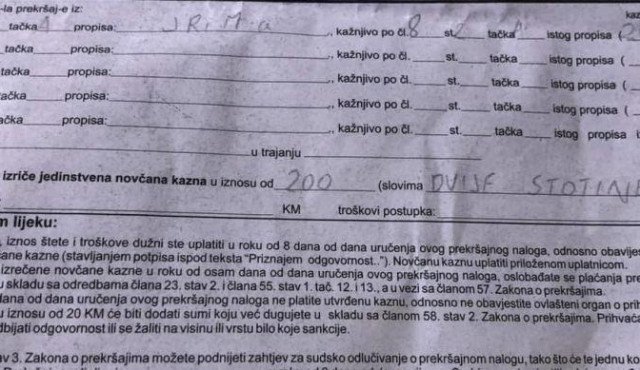 -la prekršaj-e iz:
tačka 1 propisa: JRiM-a , kažnjivo po čl. 8 st. 2 tačka istog propisa (
tačka propisa: , kažnjivo po čl. st. tačka istog propisa (
tačka propisa: , kažnjivo po čl. st. tačka istog propisa (
tačka propisa: , kažnjivo po čl. st. tačka istog propisa (
tačka propisa: , kažnjivo po čl. st. tačka istog propisa
u trajanju
izriče jedinstvena novčana kazna u iznosu od 200 (slovima DVIJE STOTINE
KM troškovi postupka:
m lijeku:
, iznos štete i troškove dužni ste uplatiti u roku od 8 dana od dana uručenja ovog prekršajnog naloga, odnosno obavijes
čane kazne (stavljanjem potpisa ispod teksta "Priznajem odgovornost.."). Novčanu kaznu uplatiti priloženom uplatnicom.
izrečene novčane kazne u roku od osam dana od dana uručenja ovog prekršajnog naloga, oslobađate se plaćanja pre
u skladu sa odredbama člana 23. stav 2. i člana 55. stav 1. tač. 12. i 13., a u vezi sa članom 57. Zakona o prekršajima.
dana od dana uručenja ovog prekršajnog naloga ne platite utvrđenu kaznu, odnosno ne obavjestite ovlašteni organ o pri
u iznosu od 20 KM će biti dodati sumi koju već dugujete u skladu sa članom 58. stav 2. Zakona o prekršajima. Prihvaća
dbijati odgovornost ili se žaliti na visinu ili vrstu bilo koje sankcije.
av 3. Zakona o prekršajima možete podnijeti zahtjev za sudsko odlučivanje o prekršajnom nalogu, tako što će te jednu ko